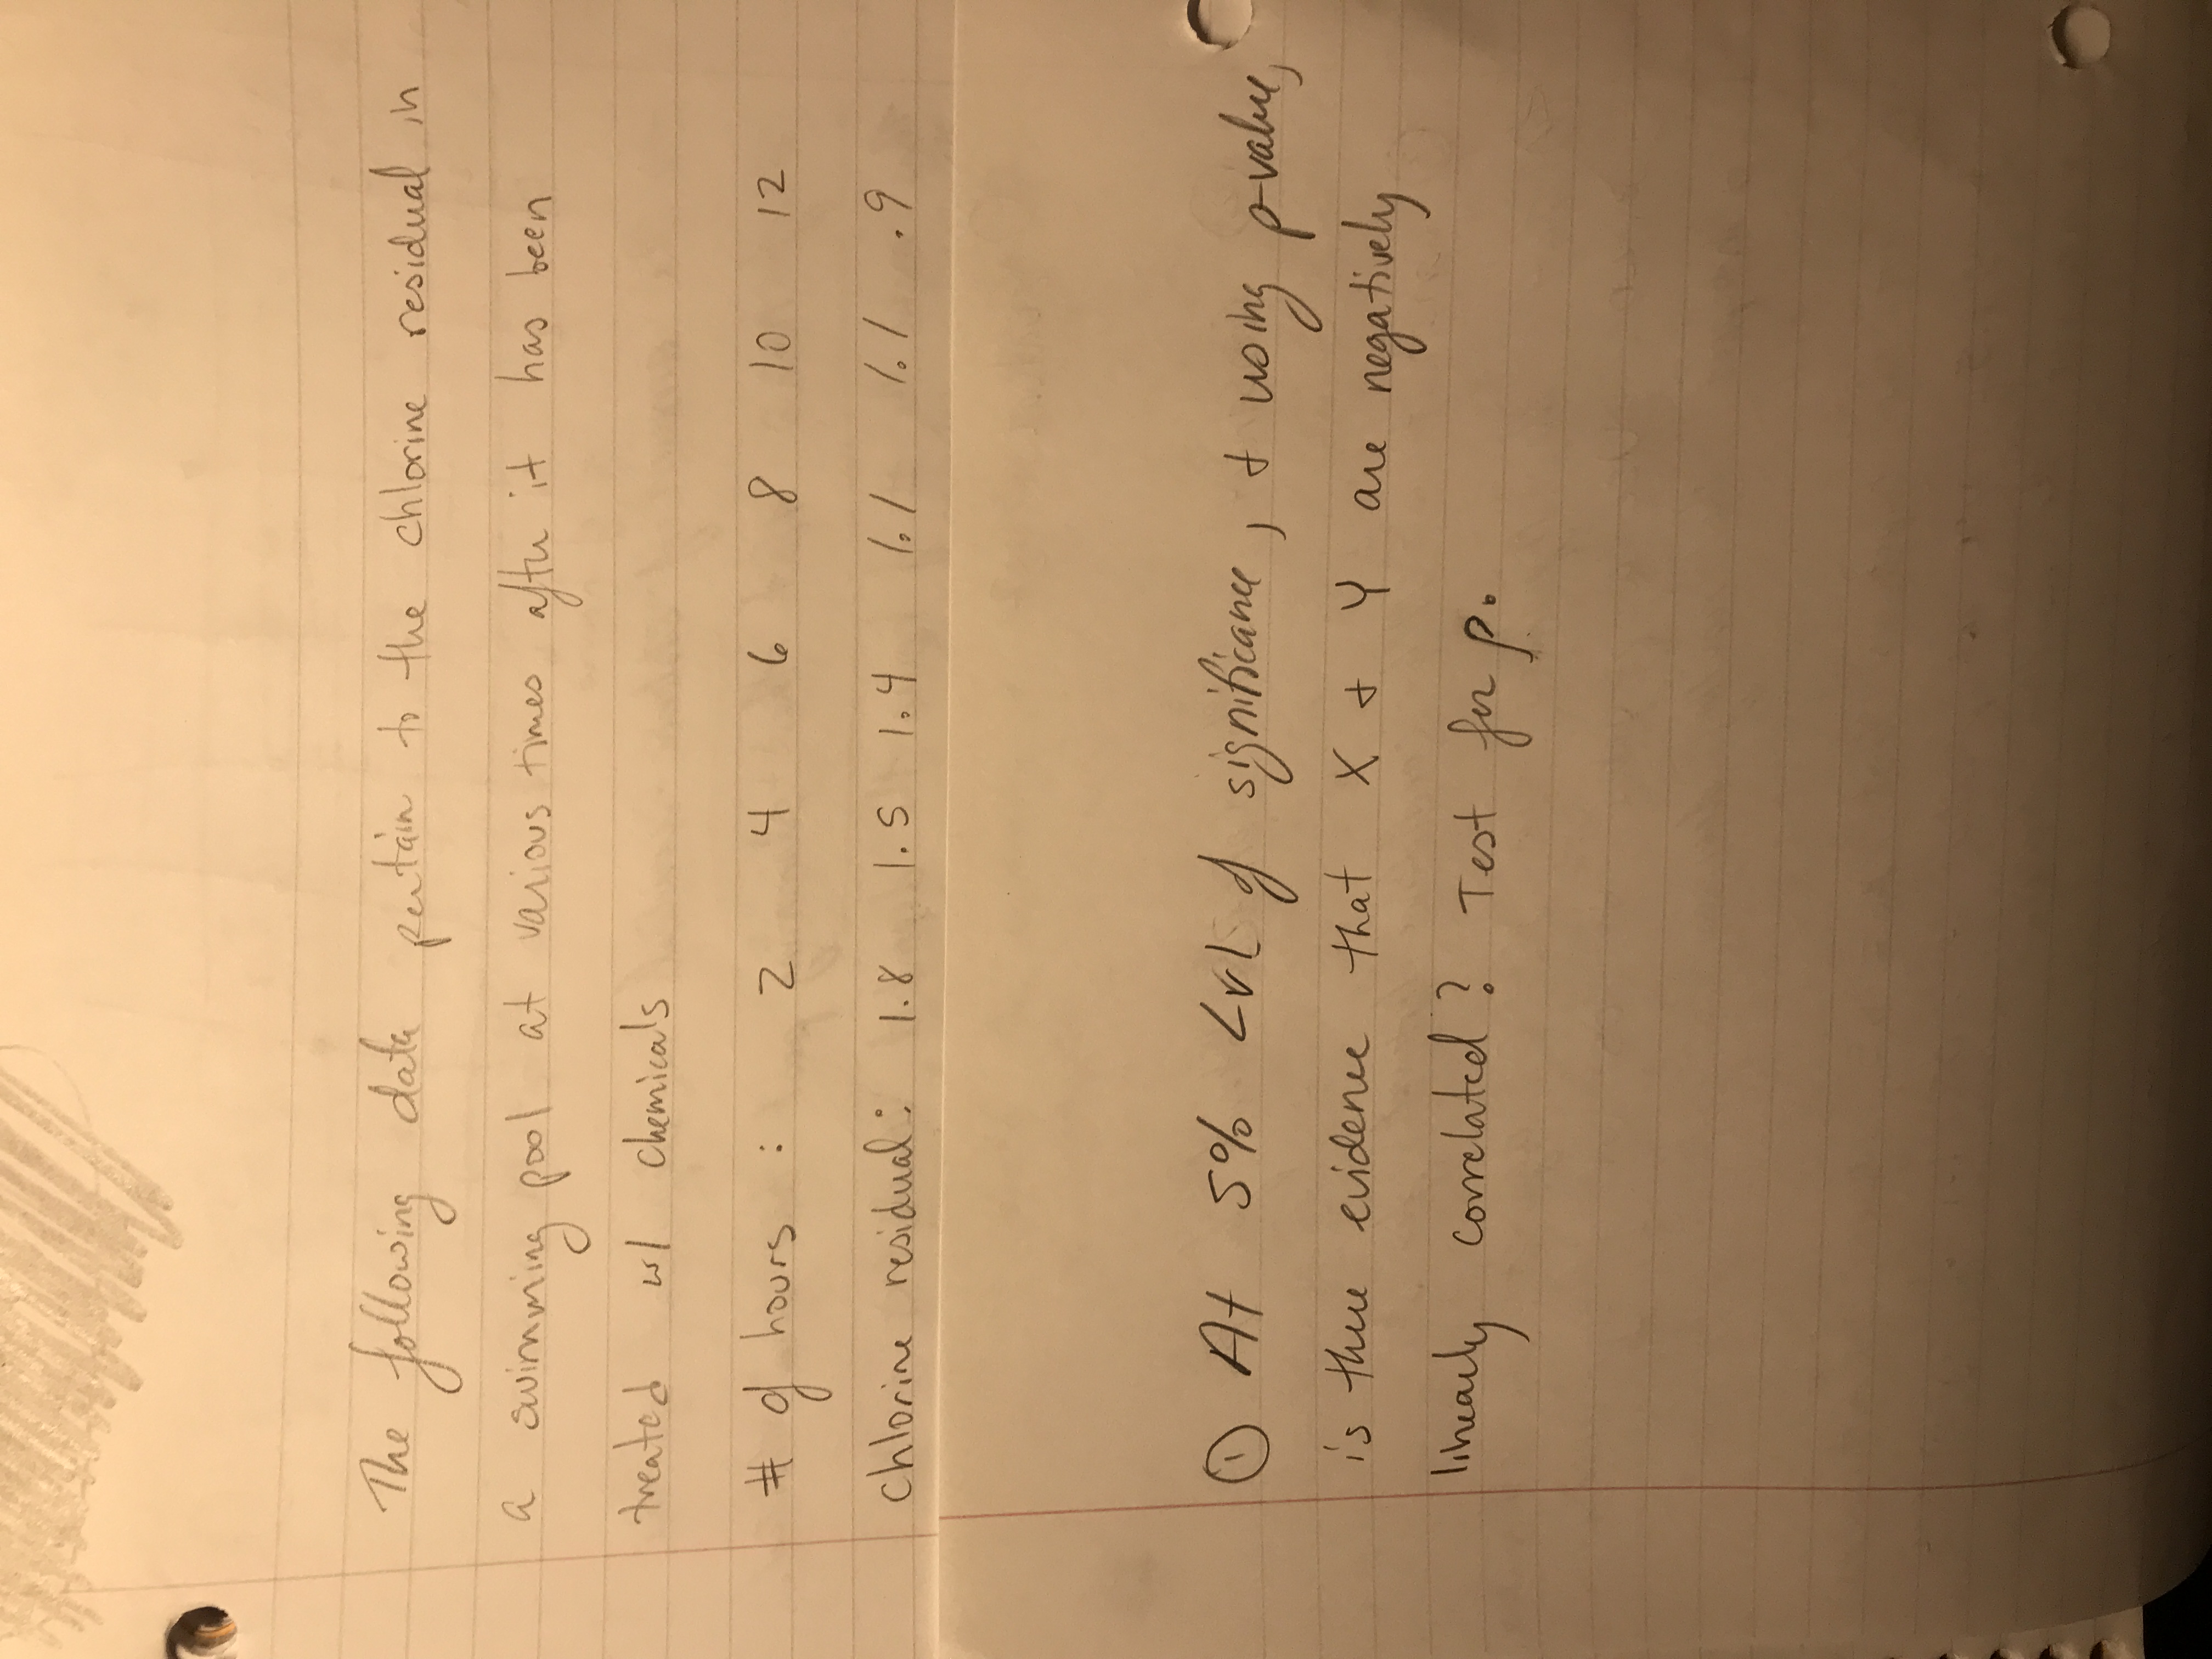 The following data pertain to the chlorine residual in
a swimming pool at various times after it has been
treated w/ chemicals
# of hours : 2 4 6 8 10 12
chlorine residual: 1.8 1.5 1.4 1.1 1.1 .9
① At 5% LVL of significance, & using p-value,
is there evidence that X & Y are negatively
linearly correlated? Test for ρ.